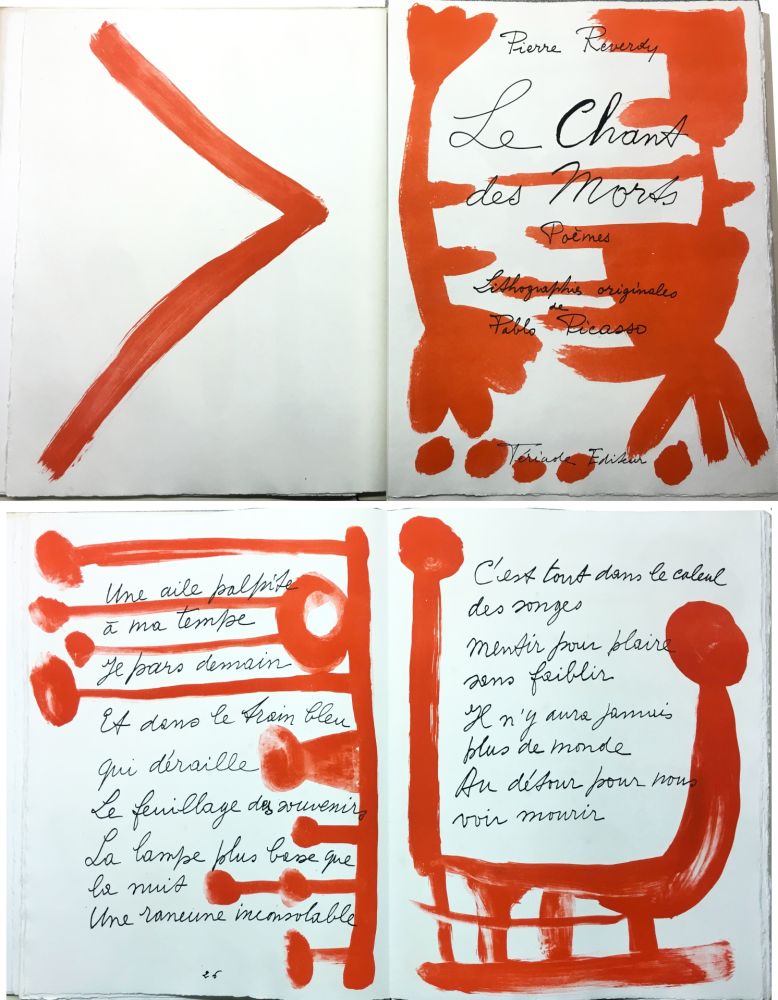 Pierre Reverdy
Le Chant
des Morts
Poèmes
Lithographies originales
de
Pablo Picasso
Tériade Editeur
Une aile palpite
à ma tempe
Je pars demain
Et dans le train bleu
qui déraille
Le feuillage des souvenirs
La lampe plus basse que
la nuit
Une rancune inconsolable
26
C'est tout dans le calcul
des songes
mentir pour plaire
sans faiblir
Il n'y aura jamais
plus de monde
Au détour pour nous
voir mourir